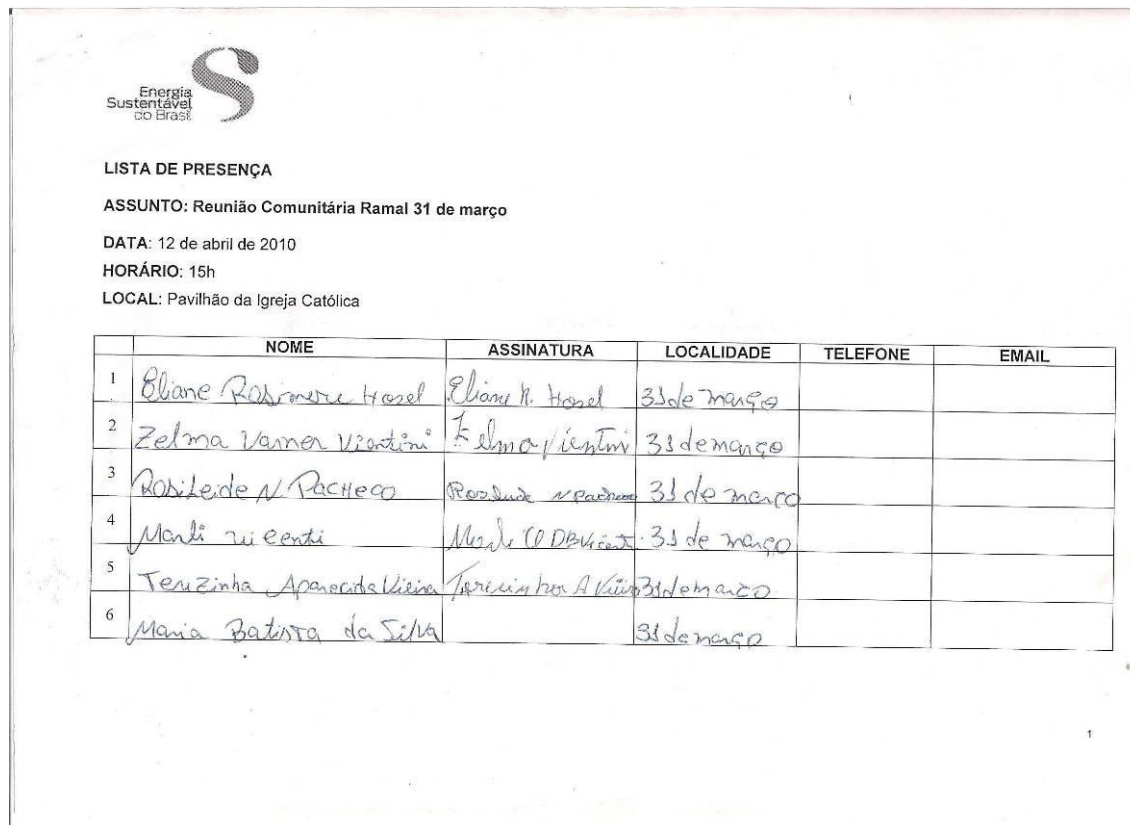 Energia
Sustentável
do Brasil
LISTA DE PRESENÇA
ASSUNTO: Reunião Comunitária Ramal 31 de março
DATA: 12 de abril de 2010
HORÁRIO: 15h
LOCAL: Pavilhão da Igreja Católica
NOME ASSINATURA LOCALIDADE TELEFONE EMAIL
1 Eliane Rosimere Hosel Eliane R. Hosel 31 de março
2 Zelma Varner Vientini 31 de março
3 Rosileide N. Pacheco Rosileide N Pacheco 31 de março
4 Marli 31 de março
5 Terezinha Aparecida Vieira Terezinha A Vieira 31 de março
6 Maria Batista da Silva 31 de março
1